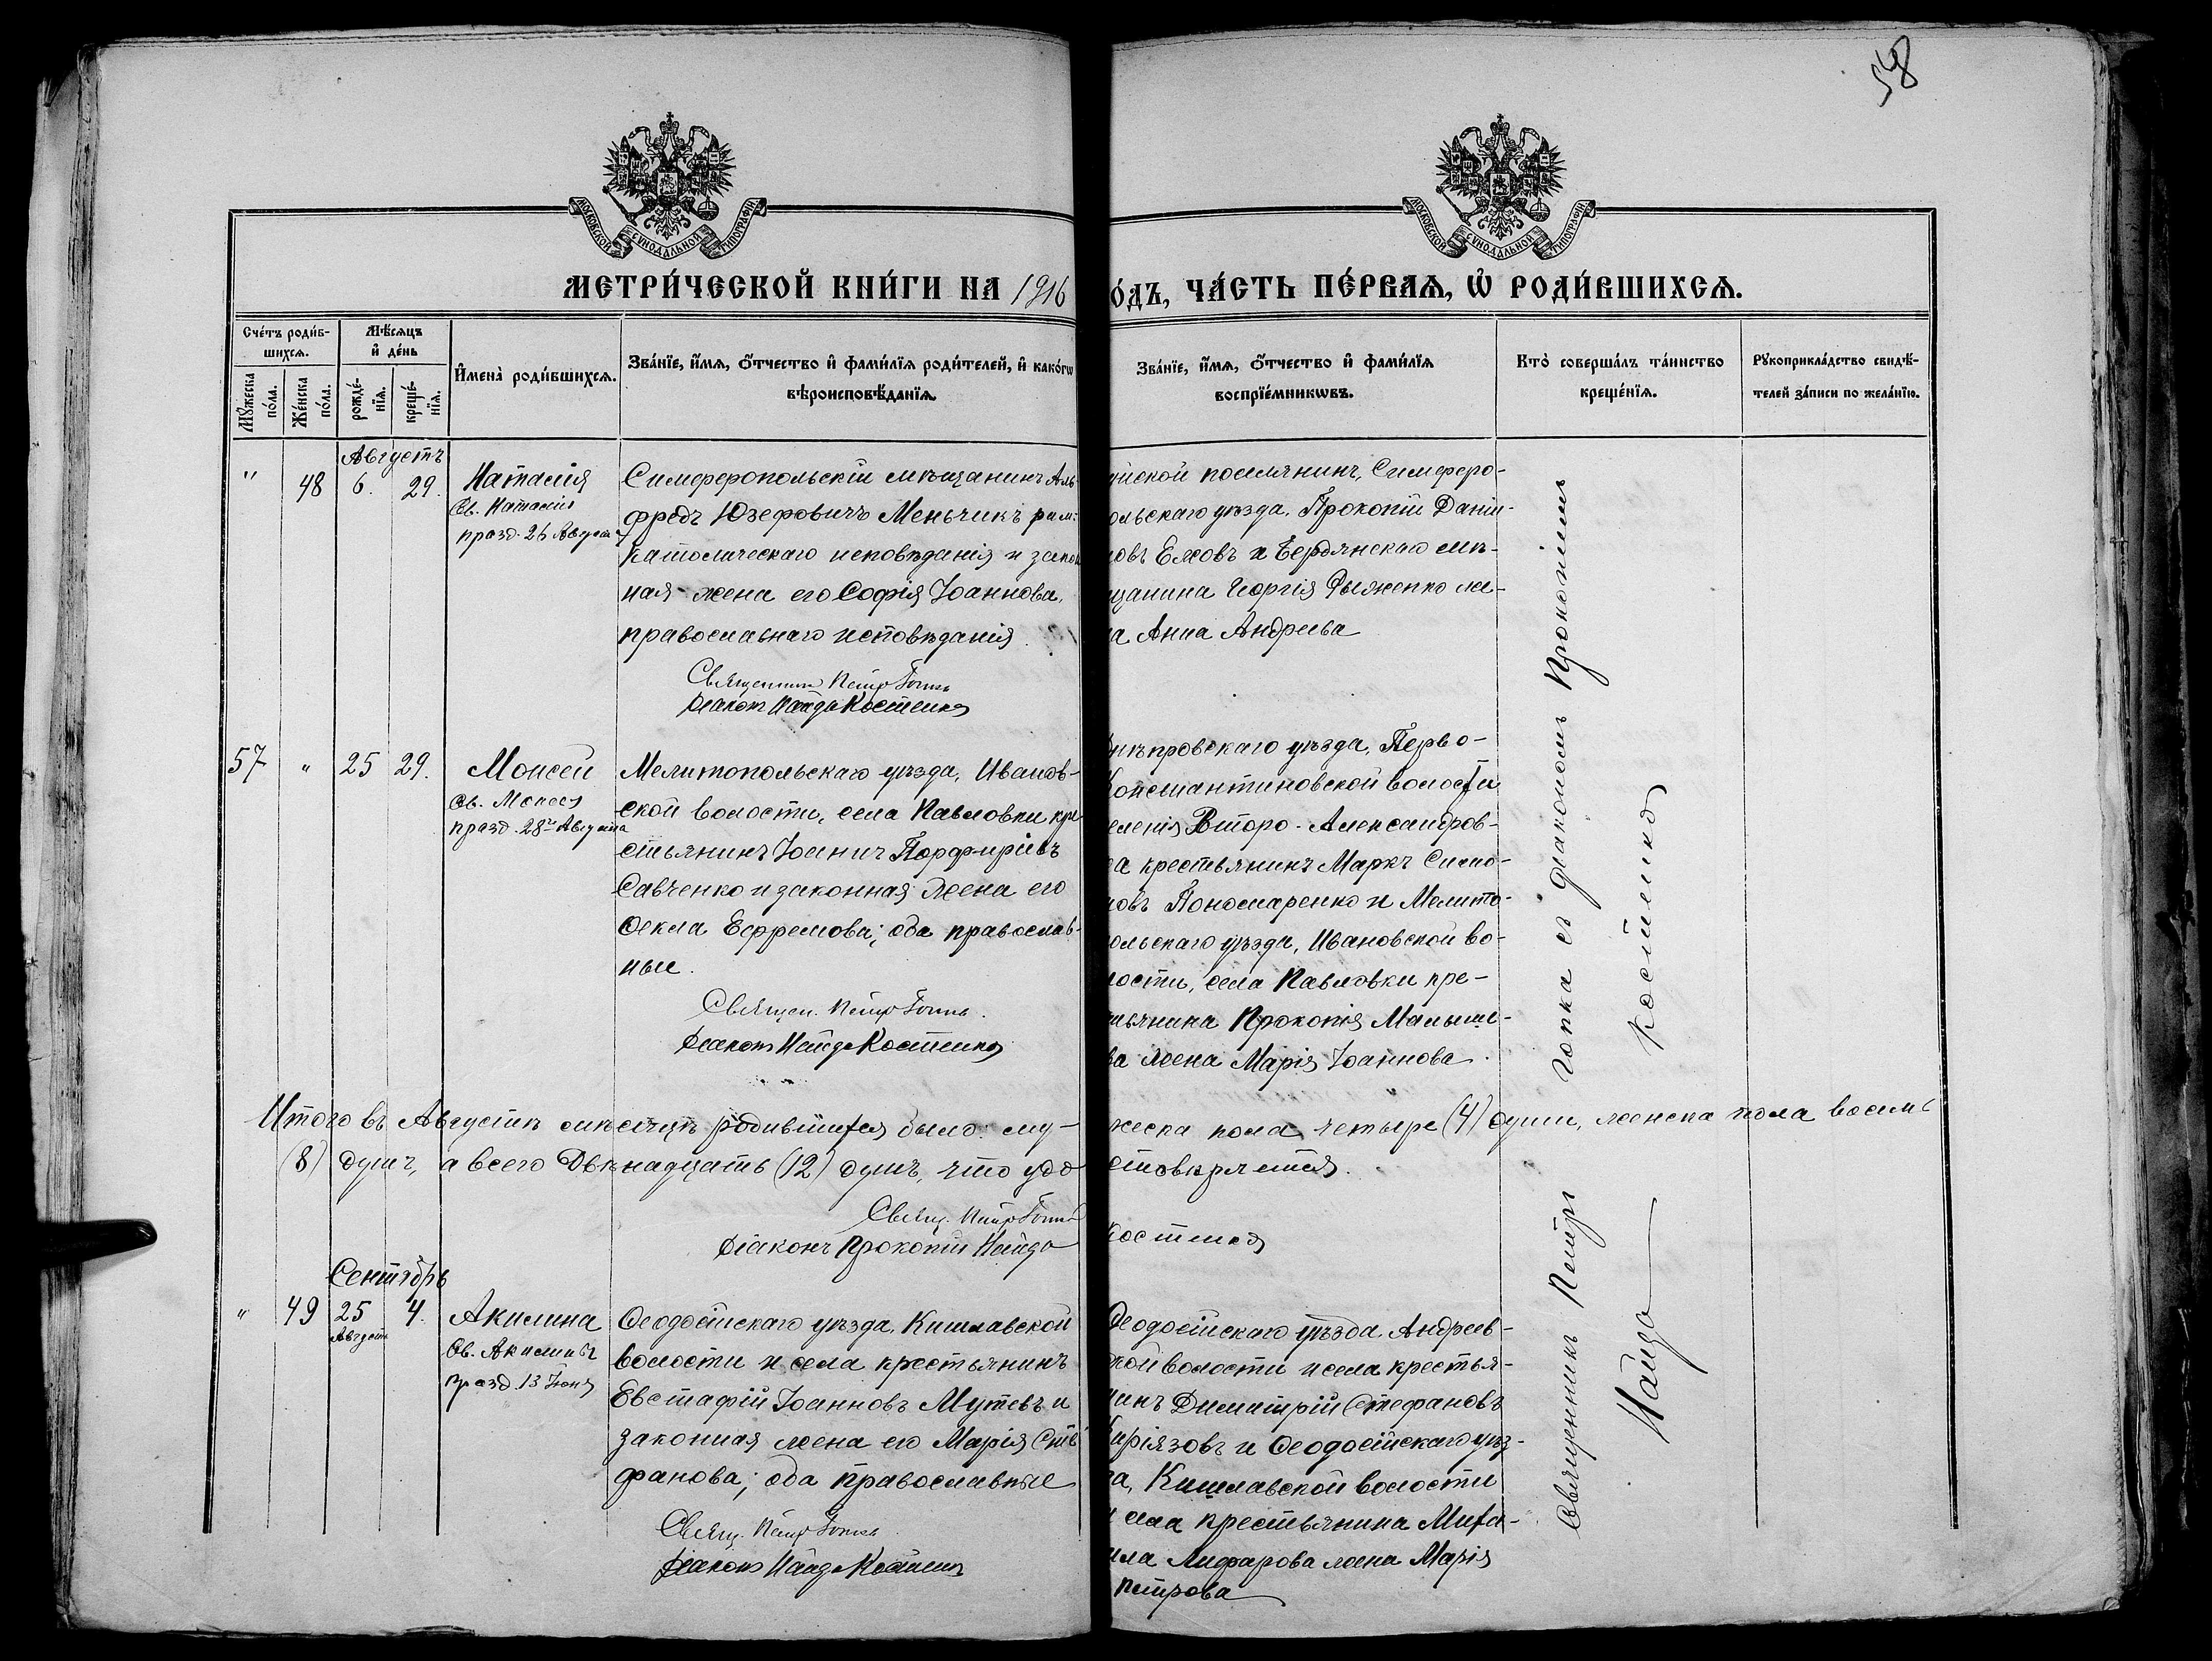 58
МОСКОВСКОЙ СѴНОДАЛЬНОЙ ТИПОГРАФІИ
МОСКОВСКОЙ СѴНОДАЛЬНОЙ ТИПОГРАФІИ
МЕТРИ́ЧЕСКОЙ КНИ́ГИ НА 1916
О́ДЪ, ЧА́СТЬ ПЕ́РВАѦ, Ѡ РОДИ́ВШИХСѦ.
Сче́тъ роди́в-
шихсѧ.
Мѣ́сѧцъ
и҆ де́нь
Мꙋ́жеска
по́ла.
Же́нска
по́ла.
рожде́-
нїѧ.
креще́-
нїѧ.
И҆мена̀ роди́вшихсѧ.
Зва́нїе, и҆́мѧ, ѻ҆́тчество и҆ фами́лїѧ роди́телей, и҆ како́гѡ
вѣроисповѣ́данїѧ.
Зва́нїе, и҆́мѧ, ѻ҆́тчество и҆ фами́лїѧ
воспрїе́мникѡвъ.
Кто̀ соверша́лъ та́инство
креще́нїѧ.
Рꙋкоприкла́дство свидѣ́-
телей за́писи по жела́нїю.
Августъ
" 48 6. 29. Наталія
Св. Наталіи
празд. 26 Августа
Симферопольскій мѣщанинъ Аль-
фредъ Юзефовичъ Меньчикъ рим.
католическаго исповѣданія и закон
ная жена его Софія Іоаннова,
православнаго исповѣданія.
Священникъ Петръ Гопка
Діаконъ Найда Костенко
йской поселянинъ, Симферо-
ольскаго уѣзда, Прокопій Даніи-
овъ Ежовъ и Бердянскаго мѣ-
щанина Георгія Рыженко же-
а Анна Андреева
57 " 25 29. Моисей
Св. Моисея
празд. 28го Августа
Мелитопольскаго уѣзда, Иванов-
ской волости, села Павловки кре
стьянинъ Іоаннъ Порфиріевъ
Савченко и законная жена его
Ѳекла Ефремова; оба православ-
ные.
Священ. Петръ Гопка.
Діаконъ Найда Костенко
нѣпровскаго уѣзда, Перво-
Константиновской волости
еленія Второ-Александров-
а крестьянинъ Маркъ Симо-
овъ Пономаренко и Мелито-
ольскаго уѣзда, Ивановской во-
лости, села Павловки кре-
тьянина Прокопія Малыше-
ва жена Марія Іоаннова.
Итого въ Августѣ мѣсяцѣ родившихся было: му-
жеска пола четыре (4) души, женска пола восемь
(8) душъ, а всего двѣнадцать (12) душъ, что удо
стовѣряется.
Свящ. Петръ Гопка
Діаконъ Прокопій Найда
Костенко
Сентябрь
" 49 25 4. Акилина
Августа
Св. Акилины
празд. 13 Іюня
Ѳеодосійскаго уѣзда, Кишлавской
волости и села крестьянинъ
Евстафій Іоанновъ Мутевъ и
законная жена его Марія Сте
фанова; оба православные
Свящ. Петръ Гопка
Діаконъ Найда Костенко
Ѳеодосійскаго уѣзда, Андреев-
кой волости и села крестья-
инъ Димитрій Стефановъ
Киріязовъ и Ѳеодосійскаго уѣз-
а, Кишлавской волости
и села крестьянина Миха-
ила Лифарова жена Марія
Петрова
Священникъ Петръ Гопка съ діакономъ Прокопіемъ
Найда Костенко